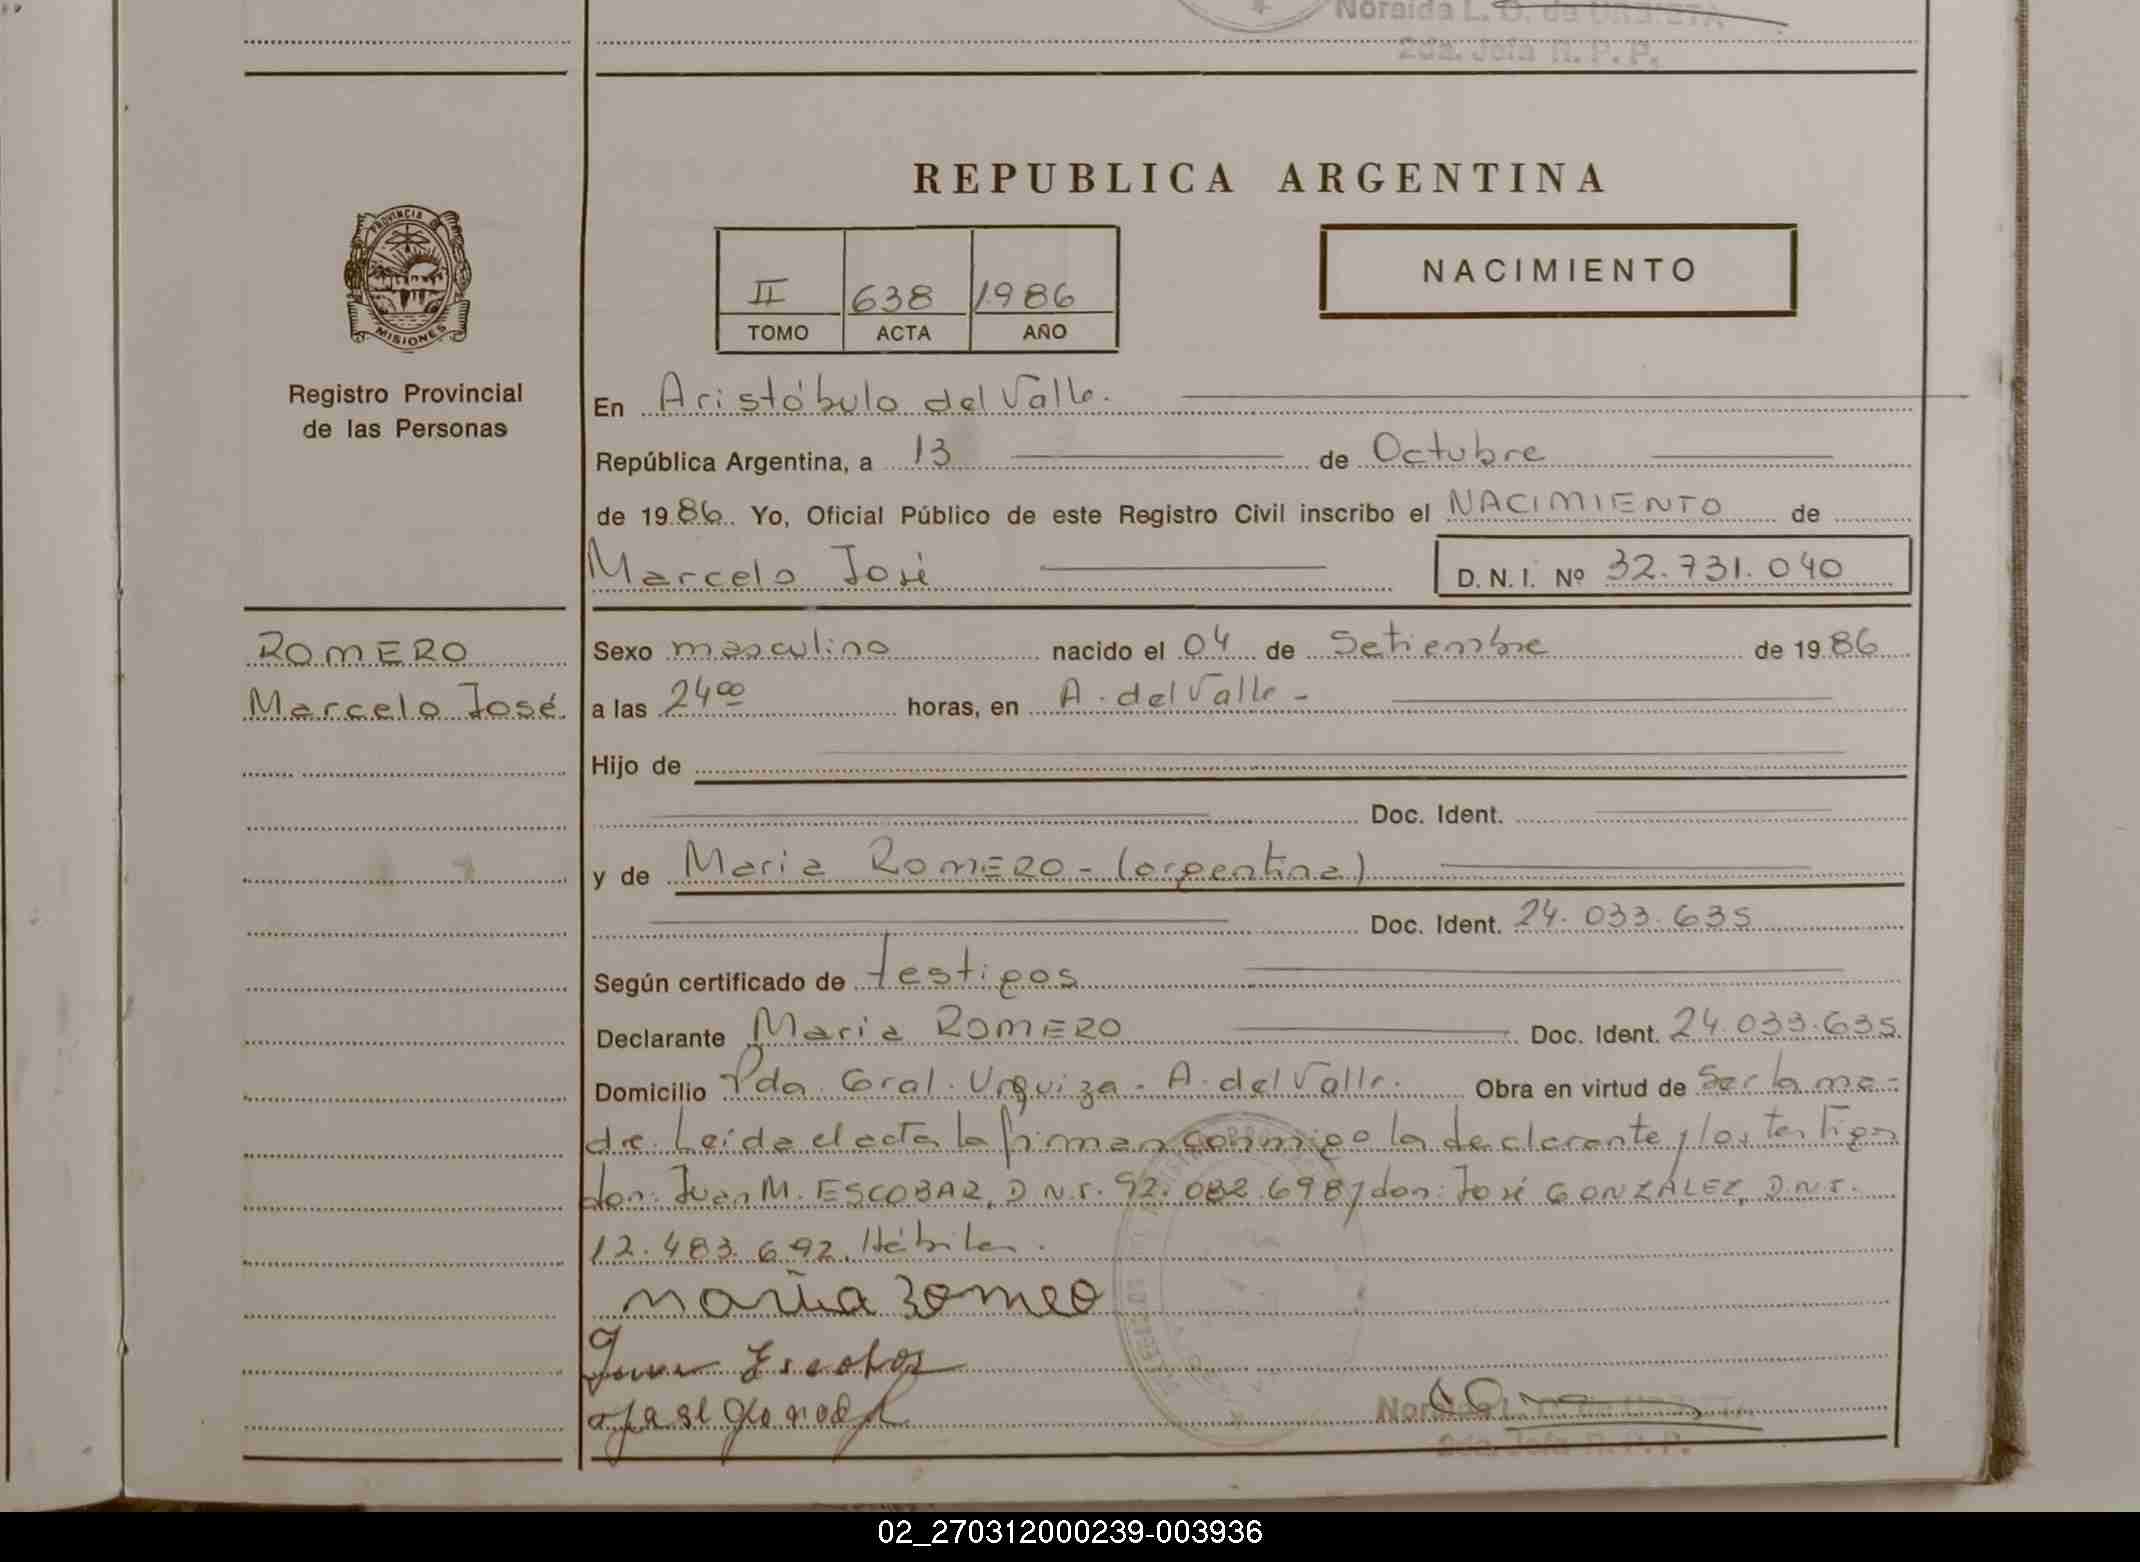 Noraida L. O. de URBISTA
2da. Jefa R. P. P.
REPUBLICA ARGENTINA
PROVINCIA
MISIONES
Registro Provincial
de las Personas
II 638 1986
TOMO ACTA AÑO
NACIMIENTO
En Aristóbulo del Valle.
República Argentina, a 13 de Octubre
de 1986. Yo, Oficial Público de este Registro Civil inscribo el NACIMIENTO de
Marcelo José D. N. I. Nº 32.731.040
ROMERO
Marcelo José.
Sexo masculino nacido el 04 de Setiembre de 1986
a las 24⁰⁰ horas, en A. del Valle -
Hijo de
Doc. Ident.
y de Maria ROMERO - (argentina)
Doc. Ident. 24.033.635
Según certificado de testigos
Declarante Maria ROMERO Doc. Ident. 24.033.635.
Domicilio Pda. Gral. Urquiza. A. del Valle. Obra en virtud de Ser la ma-
dre. Leída el acta la firman conmigo la declarante y los testigos
don: Juan M. ESCOBAR, D.N.I. 92.082.698 y don: José GONZÁLEZ, D.N.I.
12.483.692. Hábiles.
maria Romeo
Juan Escobar
Noraida L. O. de URBISTA
2da. Jefa R. P. P.
02_270312000239-003936